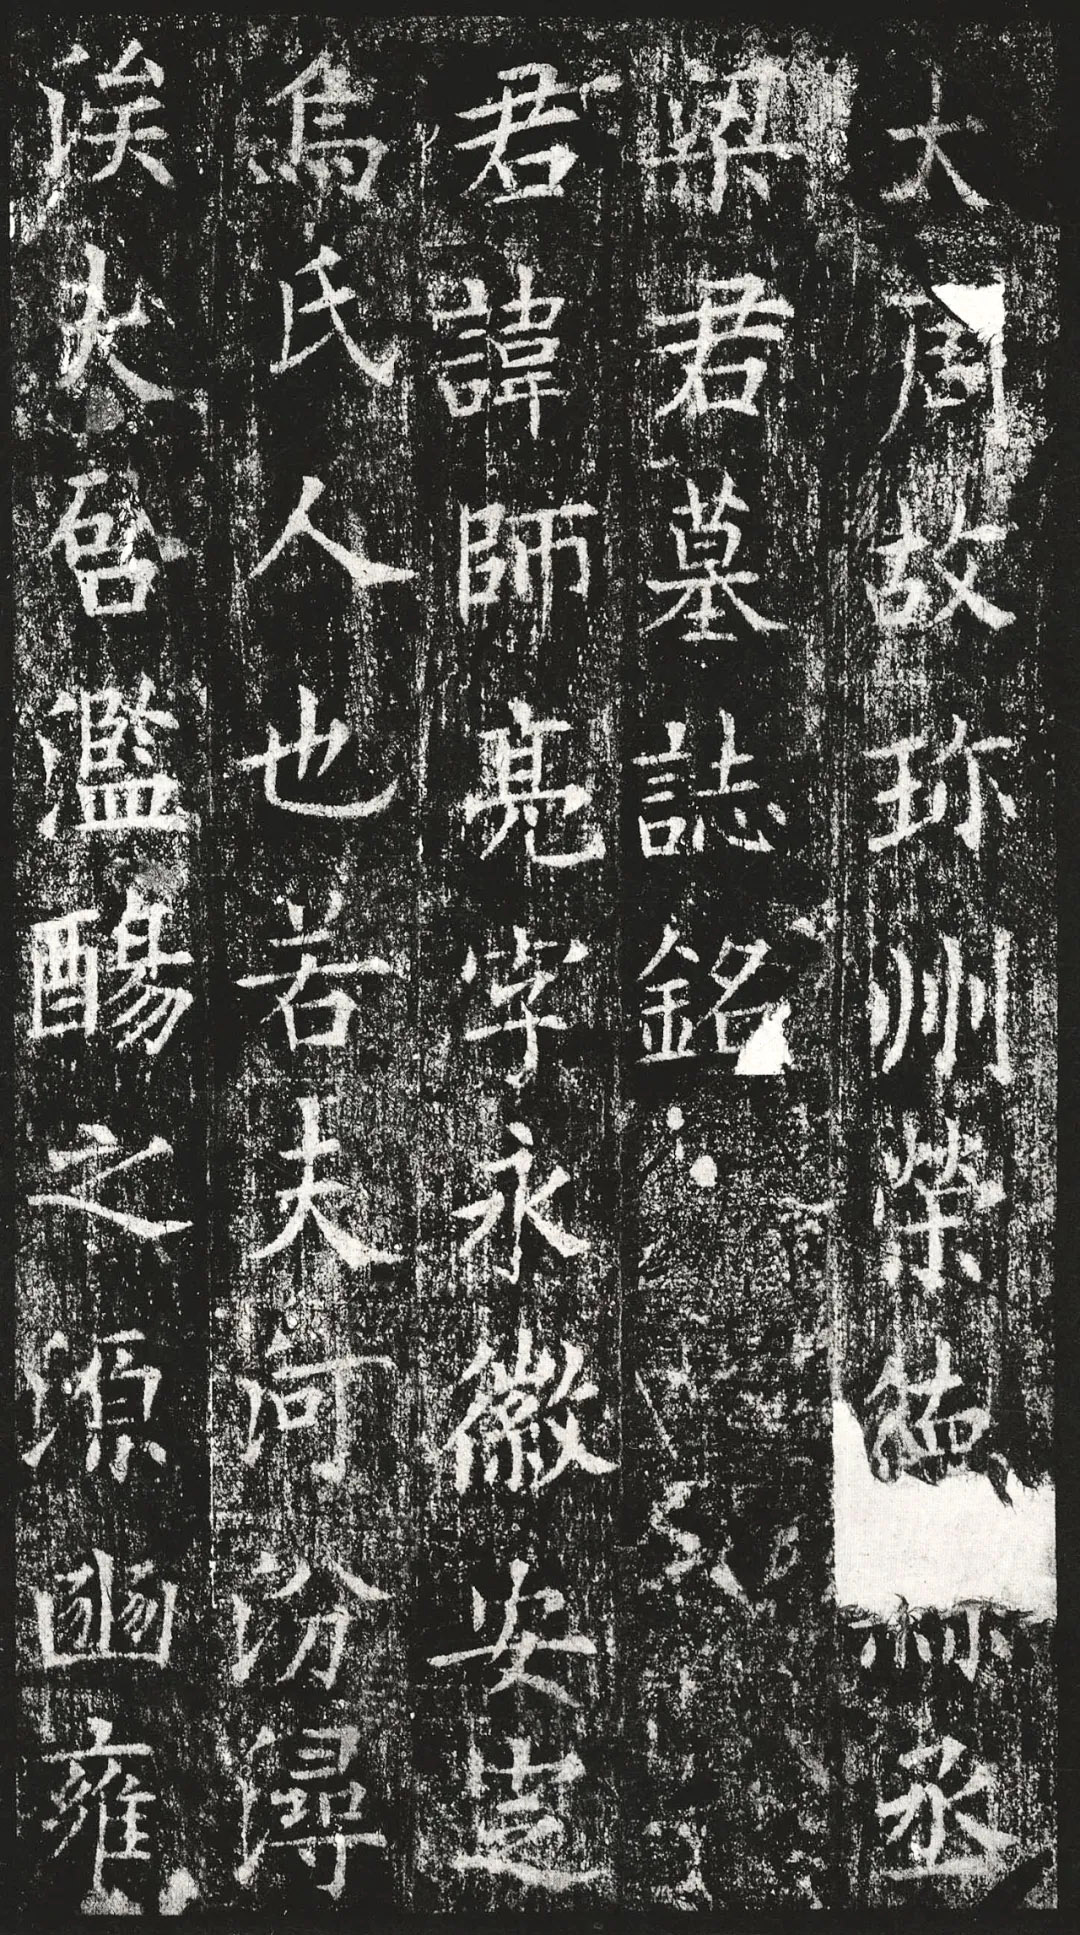 大周故珎州榮德縣丞
梁君墓誌銘
君諱師亮字永徽安定
烏氏人也若夫河汾潯
涘大啓濫觴之源豳雍